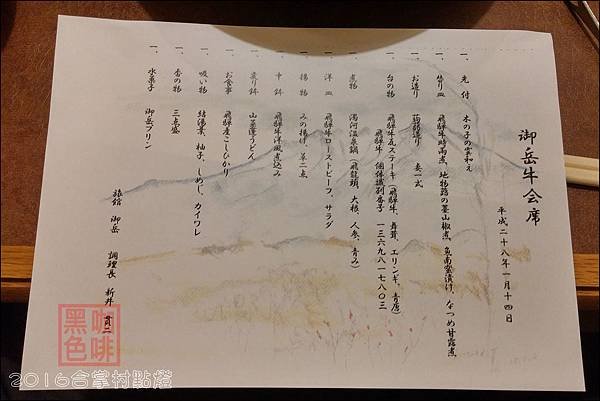 御岳牛会席
平成二十八年一月十四日
一、先付 木の子の雲和え
一、飾り皿 飛騨牛時雨煮、地物蕗の葉山椒煮、魚南蛮漬け、なつめ甘露煮
一、お造り 荷鶴造り 妻一式
一、台の物 飛騨牛瓦ステーキ（飛騨牛、舞茸、エリンギ、青唐）
飛騨牛 個体識別番号 一三六九八一七八〇三
一、煮物 濁河温泉鍋（飛龍頭、大根、人参、青み）
一、洋皿 飛騨牛ローストビーフ、サラダ
一、揚物 みの揚げ、菜二点
一、中鉢 飛騨牛洋風煮込み
一、変り鉢 山菜蓮うどん
一、お食事 飛騨産こしひかり
一、吸い物 結湯葉、柚子、しめじ、カイワレ
一、香の物 三点盛
一、水菓子 御岳プリン
旅館 御岳 調理長 新井 貫二
黑咖
色啡
2016合掌村點燈